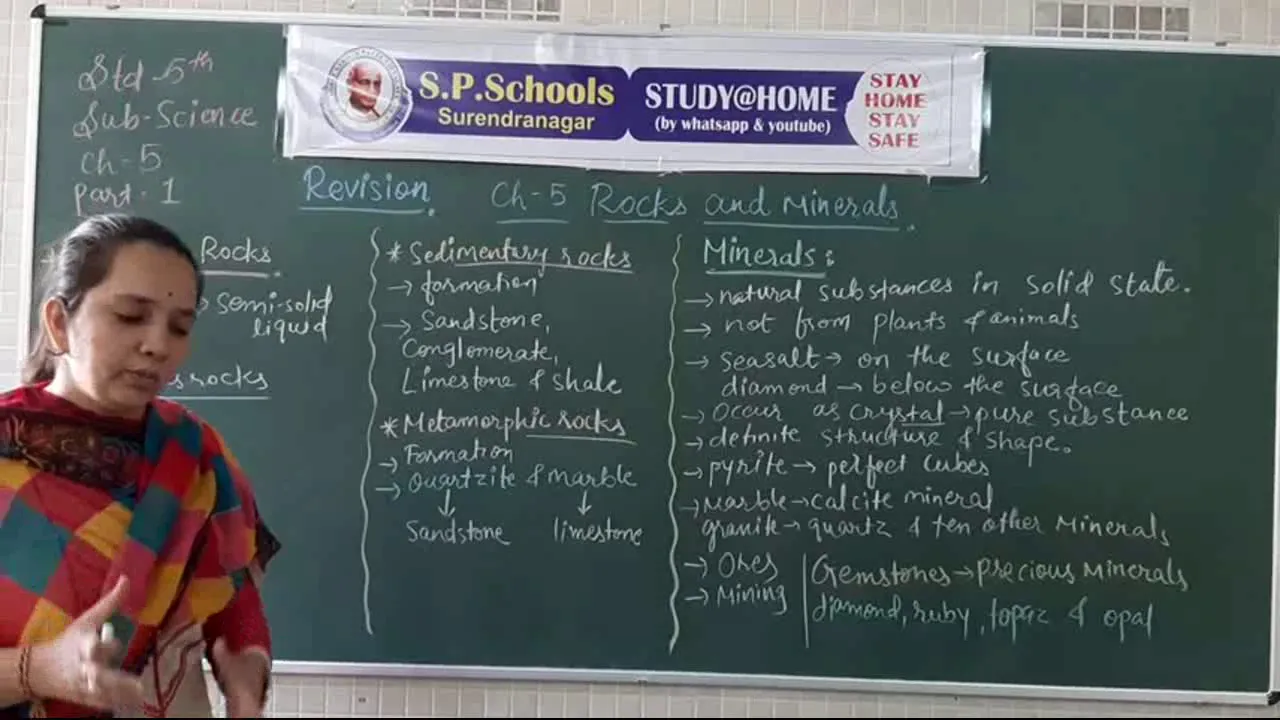 Std-5th
Sub-Science
Ch-5
Part-1
S.P.Schools
Surendranagar
STUDY@HOME
(by whatsapp & youtube)
STAY
HOME
STAY
SAFE
Revision. Ch-5 Rocks and Minerals.
Rocks
→ semi-solid
liquid
rocks
* Sedimentary rocks
→ formation
→ Sandstone,
Conglomerate,
Limestone & shale
* Metamorphic rocks
→ Formation
→ Quartzite & marble
↓ ↓
Sandstone limestone
Minerals:
→ natural substances in solid state.
→ not from plants & animals
→ seasalt → on the surface
diamond → below the surface
→ Occur as crystal → pure substance
→ definite structure & shape.
→ pyrite → perfect cubes
→ Marble → calcite mineral
granite → quartz & ten other Minerals
→ Ores
→ Mining
Gemstones → precious Minerals
diamond, ruby, topaz & opal